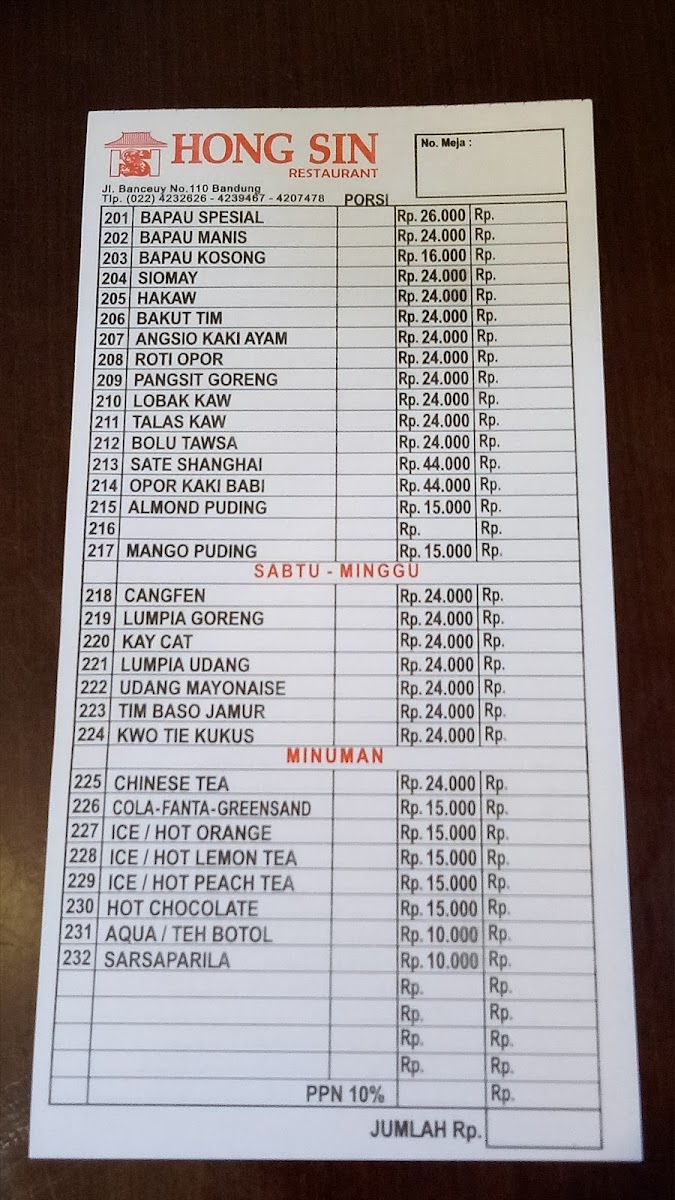 HONG SIN
RESTAURANT
No. Meja :
Jl. Banceuy No.110 Bandung
Tlp. (022) 4232626 - 4239467 - 4207478
PORSI
201 BAPAU SPESIAL Rp. 26.000 Rp.
202 BAPAU MANIS Rp. 24.000 Rp.
203 BAPAU KOSONG Rp. 16.000 Rp.
204 SIOMAY Rp. 24.000 Rp.
205 HAKAW Rp. 24.000 Rp.
206 BAKUT TIM Rp. 24.000 Rp.
207 ANGSIO KAKI AYAM Rp. 24.000 Rp.
208 ROTI OPOR Rp. 24.000 Rp.
209 PANGSIT GORENG Rp. 24.000 Rp.
210 LOBAK KAW Rp. 24.000 Rp.
211 TALAS KAW Rp. 24.000 Rp.
212 BOLU TAWSA Rp. 24.000 Rp.
213 SATE SHANGHAI Rp. 44.000 Rp.
214 OPOR KAKI BABI Rp. 44.000 Rp.
215 ALMOND PUDING Rp. 15.000 Rp.
216 Rp. Rp.
217 MANGO PUDING Rp. 15.000 Rp.
SABTU - MINGGU
218 CANGFEN Rp. 24.000 Rp.
219 LUMPIA GORENG Rp. 24.000 Rp.
220 KAY CAT Rp. 24.000 Rp.
221 LUMPIA UDANG Rp. 24.000 Rp.
222 UDANG MAYONAISE Rp. 24.000 Rp.
223 TIM BASO JAMUR Rp. 24.000 Rp.
224 KWO TIE KUKUS Rp. 24.000 Rp.
MINUMAN
225 CHINESE TEA Rp. 24.000 Rp.
226 COLA-FANTA-GREENSAND Rp. 15.000 Rp.
227 ICE / HOT ORANGE Rp. 15.000 Rp.
228 ICE / HOT LEMON TEA Rp. 15.000 Rp.
229 ICE / HOT PEACH TEA Rp. 15.000 Rp.
230 HOT CHOCOLATE Rp. 15.000 Rp.
231 AQUA / TEH BOTOL Rp. 10.000 Rp.
232 SARSAPARILA Rp. 10.000 Rp.
Rp. Rp.
Rp. Rp.
Rp. Rp.
Rp. Rp.
PPN 10% Rp.
JUMLAH Rp.